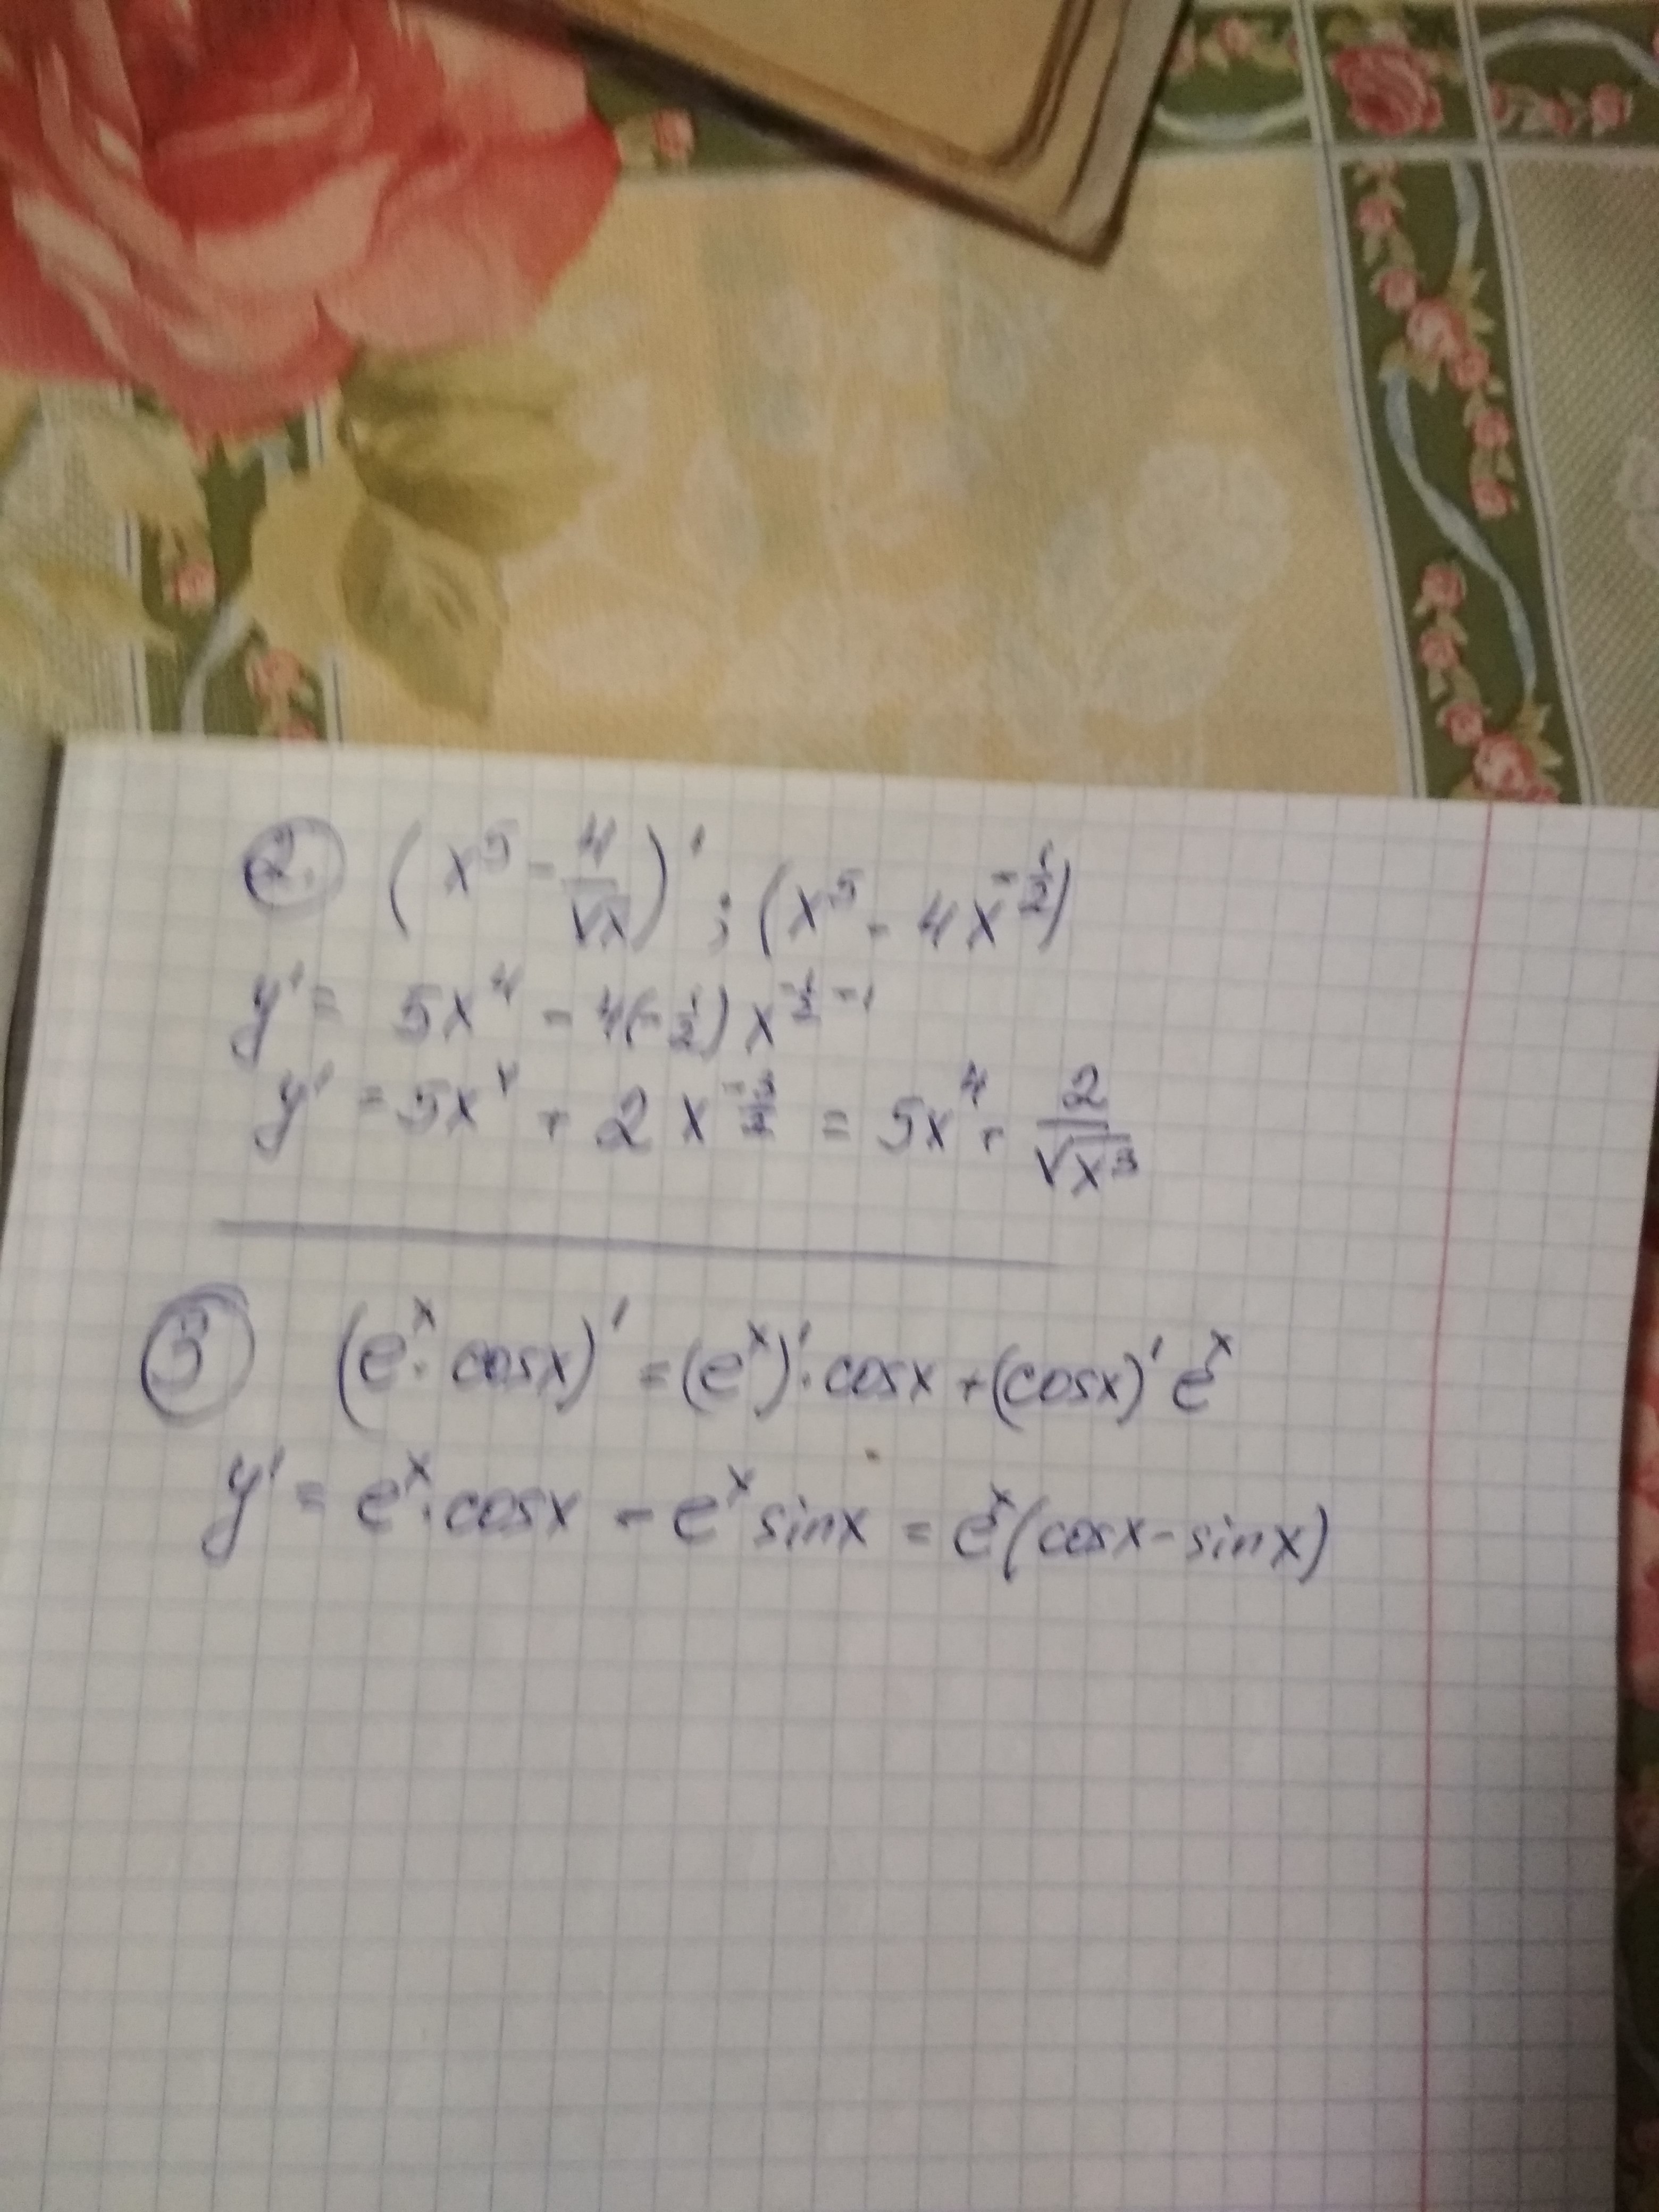 2. (x⁵ - 4/√x)' ; (x⁵ - 4x^(-1/2))
y' = 5x⁴ - 4(-1/2) x^(-1/2 - 1)
y' = 5x⁴ + 2x^(-3/2) = 5x⁴ + 2/√x³
3 (eˣ · cosx)' = (eˣ)' · cosx + (cosx)' eˣ
y' = eˣ · cosx - eˣ sinx = eˣ(cosx - sinx)